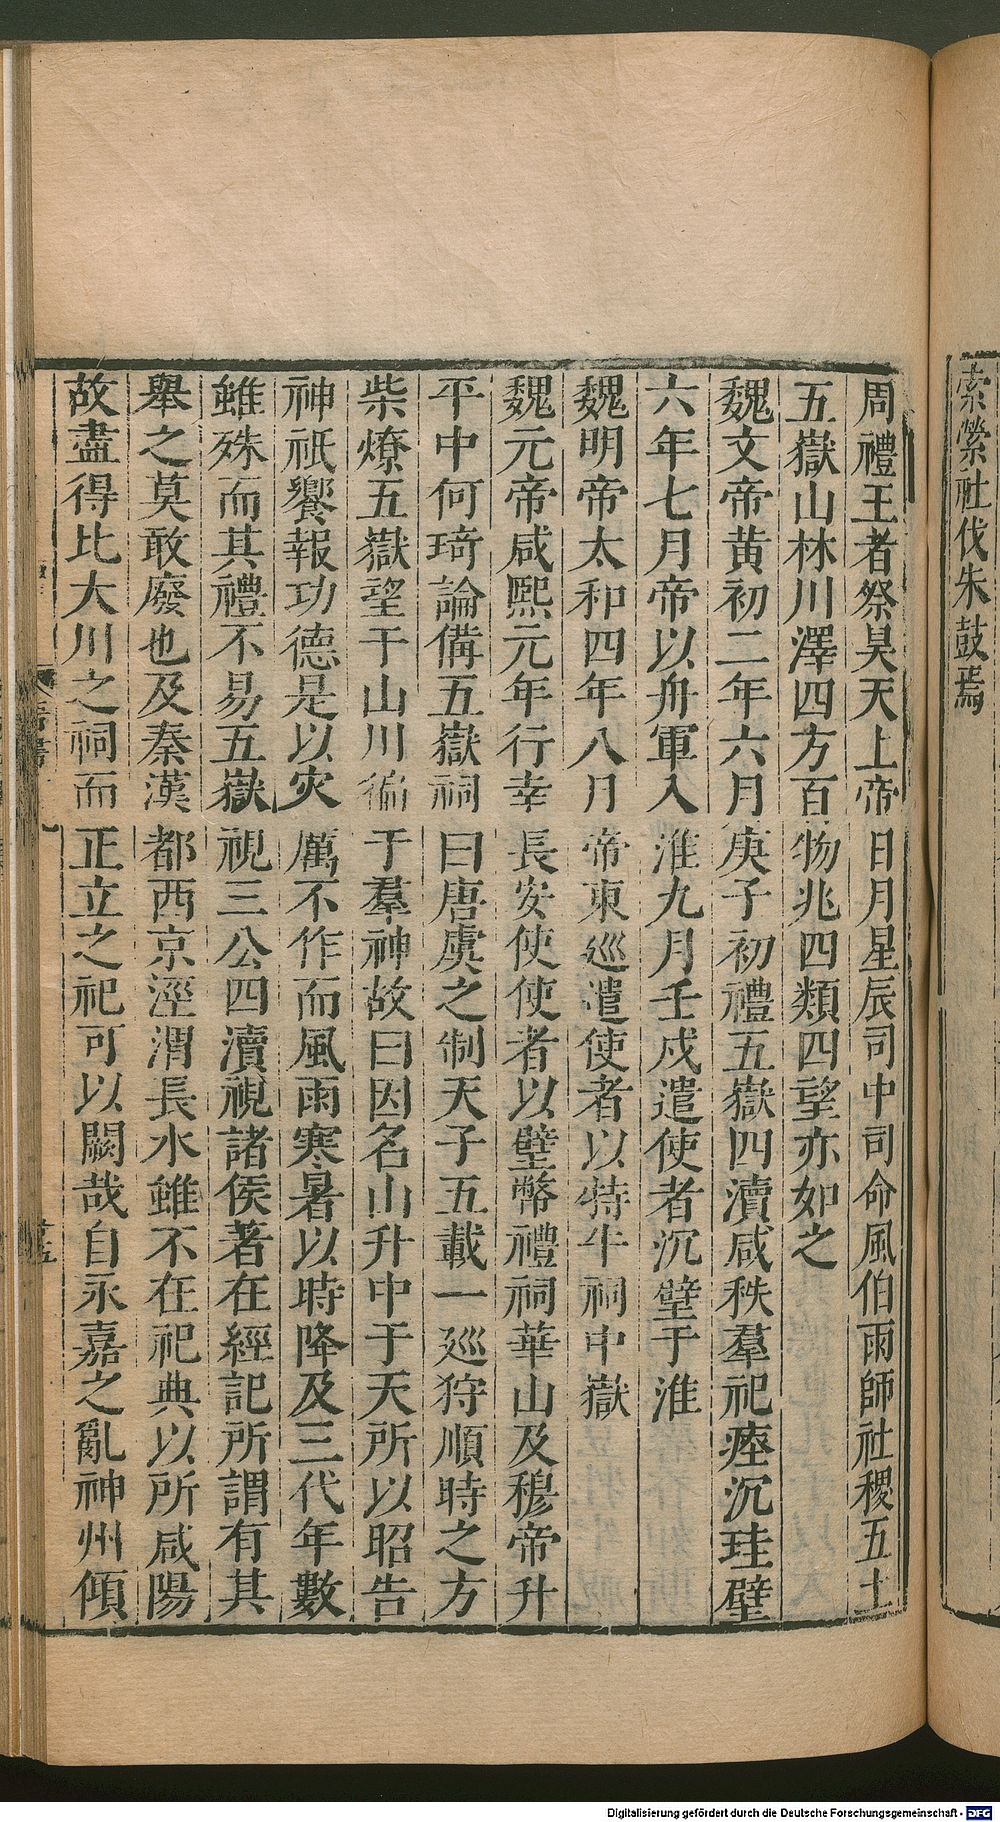 索縈社伐朱鼓焉
周禮王者祭昊天上帝日月星辰司中司命風伯雨師社稷五土
五嶽山林川澤四方百物兆四類四望亦如之
魏文帝黄初二年六月庚子初禮五嶽四瀆咸秩羣祀瘞沉珪璧
六年七月帝以舟軍入淮九月壬戌遣使者沉璧于淮
魏明帝太和四年八月帝東巡遣使者以特牛祠中嶽
魏元帝咸熙元年行幸長安使使者以璧幣禮祠華山及穆帝升
平中何琦論備五嶽祠曰唐虞之制天子五載一巡狩順時之方
柴燎五嶽望于山川徧于羣神故曰因名山升中于天所以昭告
神祇饗報功德是以灾厲不作而風雨寒暑以時降及三代年數
雖殊而其禮不易五嶽視三公四瀆視諸侯著在經記所謂有其
舉之莫敢廢也及秦漢都西京涇渭長水雖不在祀典以所咸陽
故盡得比大川之祠而正立之祀可以闕哉自永嘉之亂神州傾
Digitalisierung gefördert durch die Deutsche Forschungsgemeinschaft - DFG